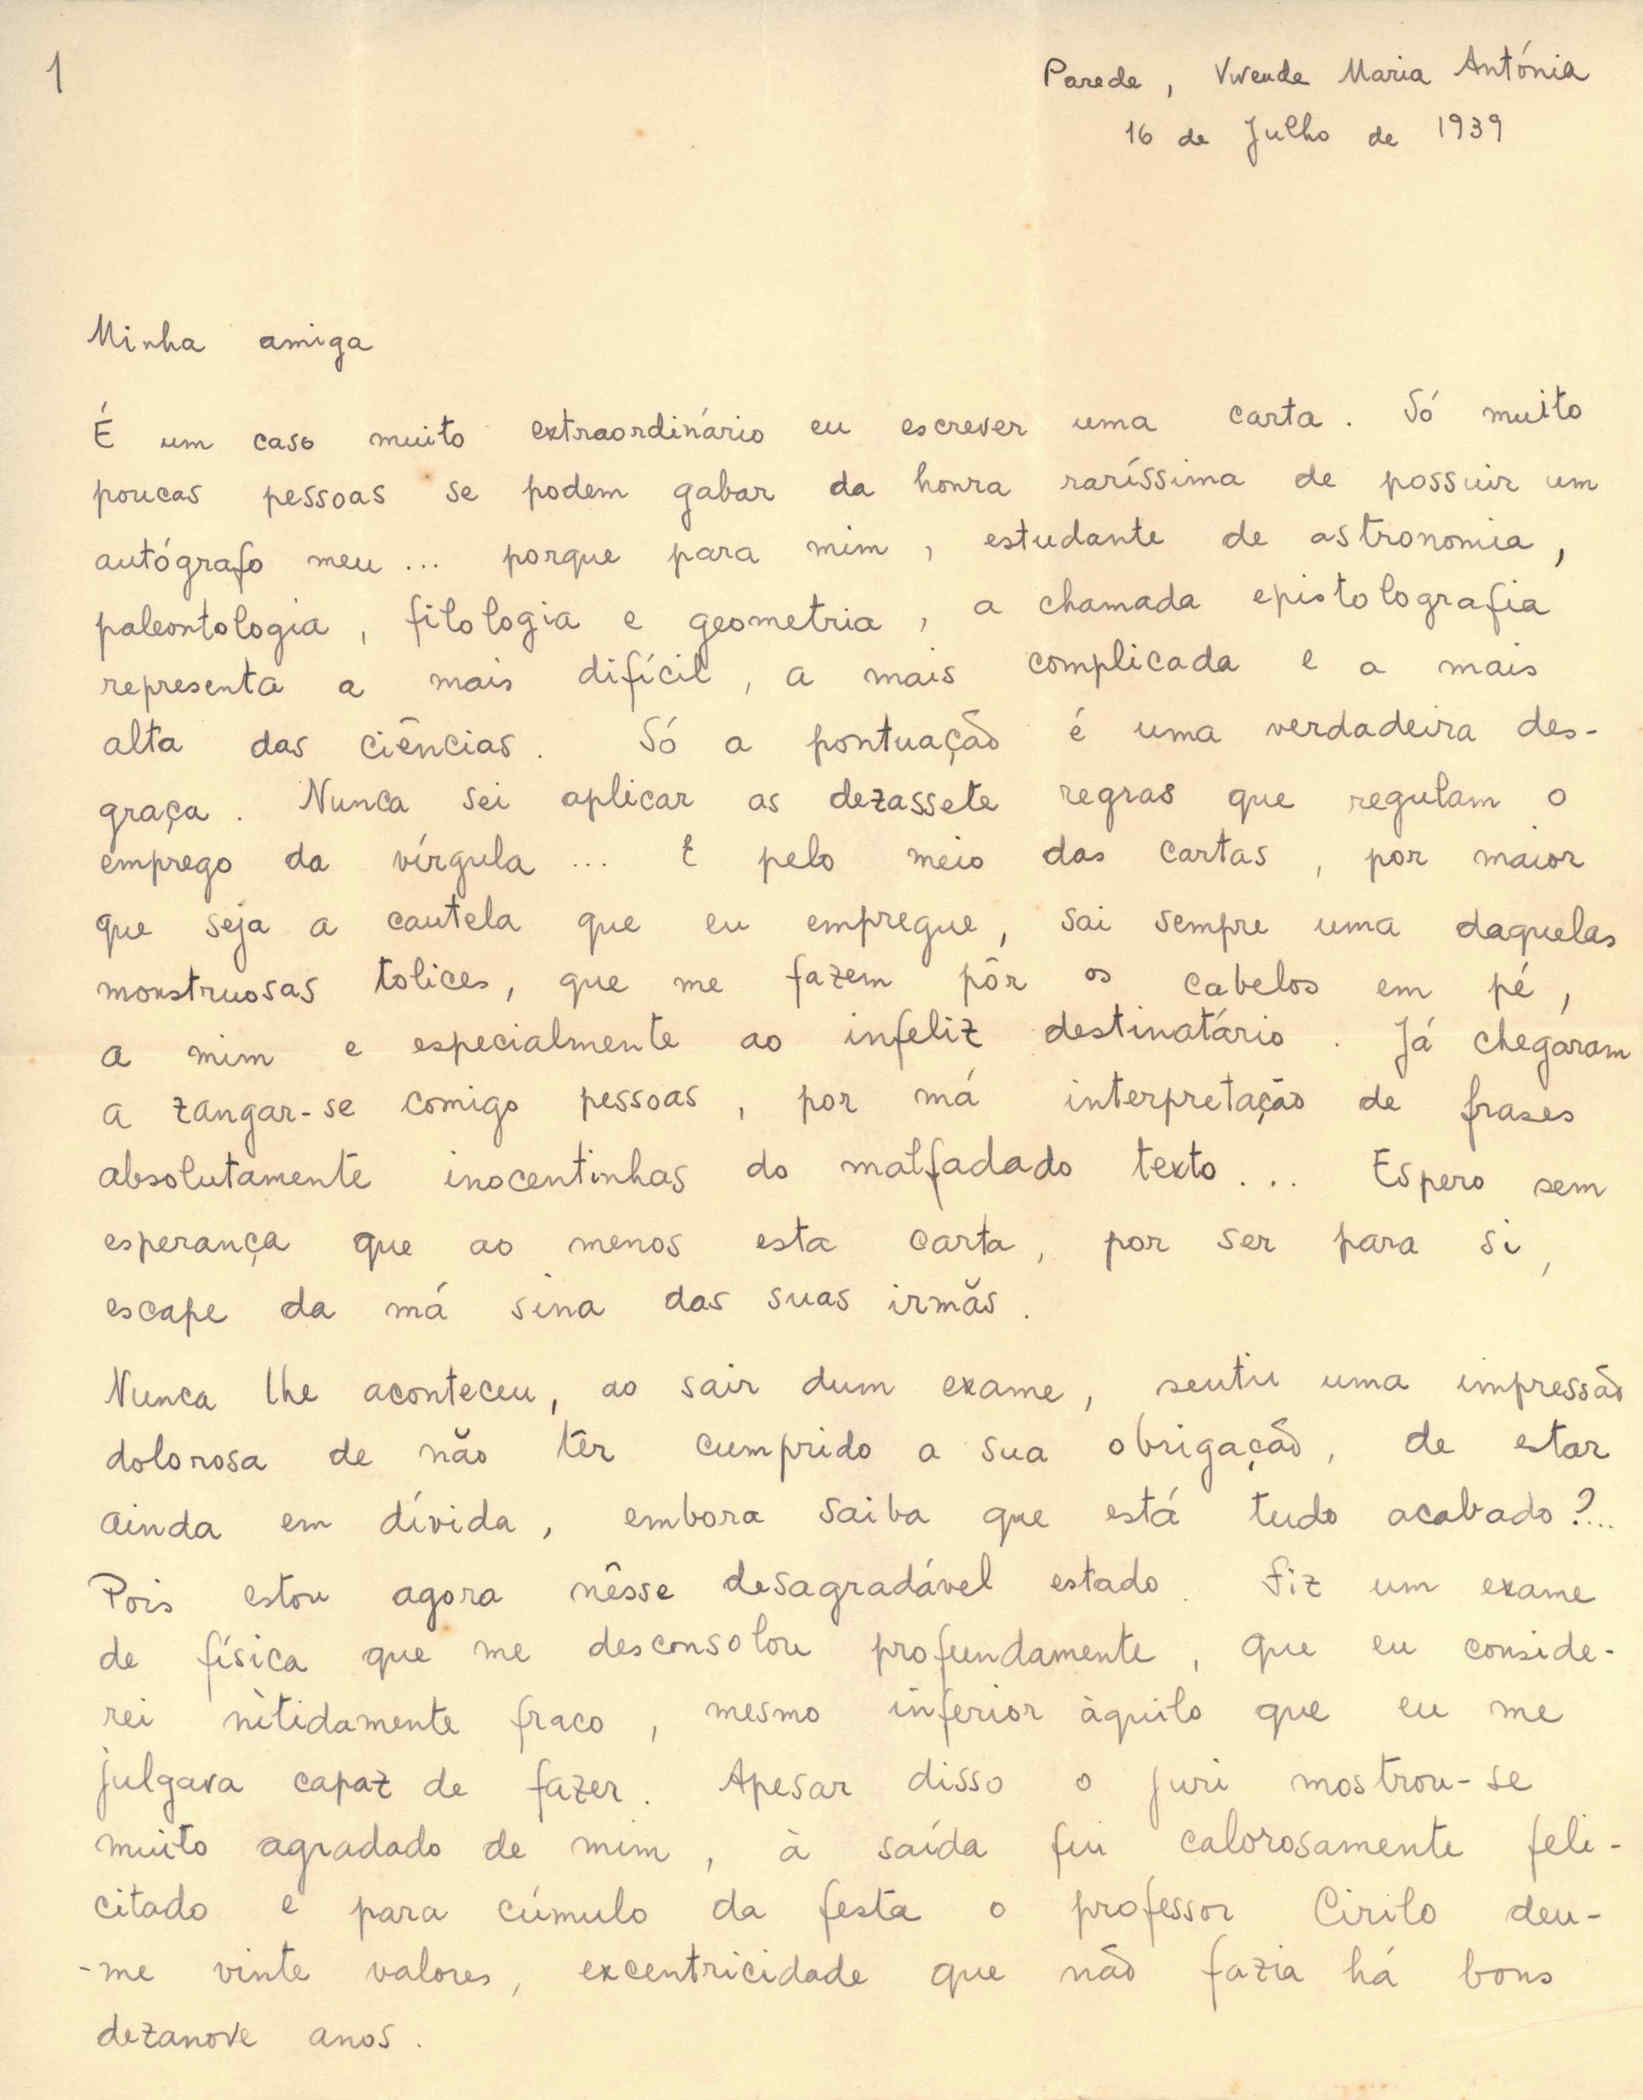 1
Parede, Vivenda Maria Antónia
16 de Julho de 1939
Minha amiga
É um caso muito extraordinário eu escrever uma carta. Só muito
poucas pessoas se podem gabar da honra raríssima de possuir um
autógrafo meu... porque para mim, estudante de astronomia,
paleontologia, filologia e geometria, a chamada epistolografia
representa a mais difícil, a mais complicada e a mais
alta das ciências. Só a pontuação é uma verdadeira des-
graça. Nunca sei aplicar as dezassete regras que regulam o
emprego da vírgula... E pelo meio das cartas, por maior
que seja a cautela que eu empregue, sai sempre uma daquelas
monstruosas tolices, que me fazem pôr os cabelos em pé,
a mim e especialmente ao infeliz destinatário. Já chegáram
a zangar-se comigo pessoas, por má interpretação de frases
absolutamente inocentinhas do malfadado texto... Espero sem
esperança que ao menos esta carta, por ser para si,
escape da má sina das suas irmãs.
Nunca lhe aconteceu, ao sair dum exame, sentir uma impressão
dolorosa de não têr cumprido a sua obrigação, de estar
ainda em dívida, embora saiba que está tudo acabado?...
Pois estou agora nêsse desagradável estado. Fiz um exame
de física que me desconsolou profundamente, que eu conside-
rei nìtidamente fraco, mesmo inferior àquilo que eu me
julgava capaz de fazer. Apesar disso o juri mostrou-se
muito agradado de mim, à saída fui calorosamente feli-
citado e para cúmulo da festa o professor Cirilo deu-
-me vinte valores, excentricidade que não fazia há bons
dezanove anos.